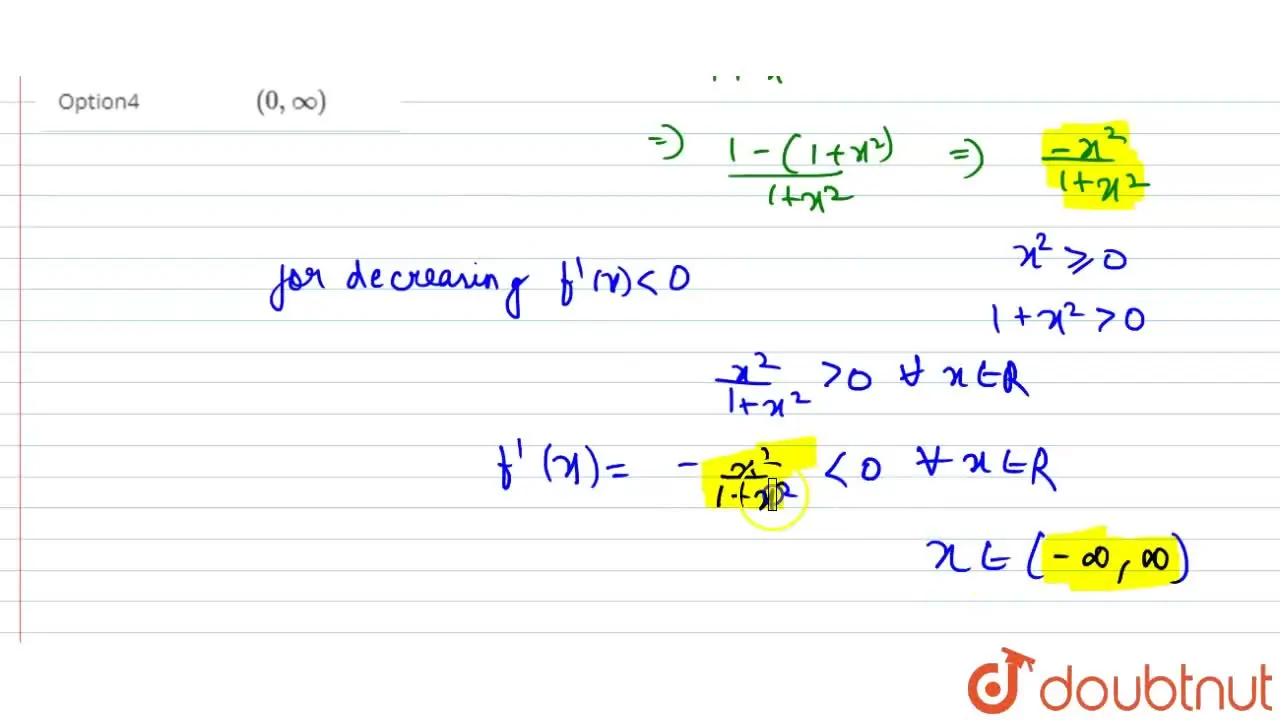 Option4 (0, ∞)
=) 1 - (1+x²) / 1+x² =) -x² / 1+x²
x² ⩾ 0
for decreasing f'(x) < 0
1 + x² > 0
x² / 1+x² > 0 ∀ x ∈ R
f'(x) = - x² / 1+x² < 0 ∀ x ∈ R
x ∈ (-∞, ∞)
doubtnut